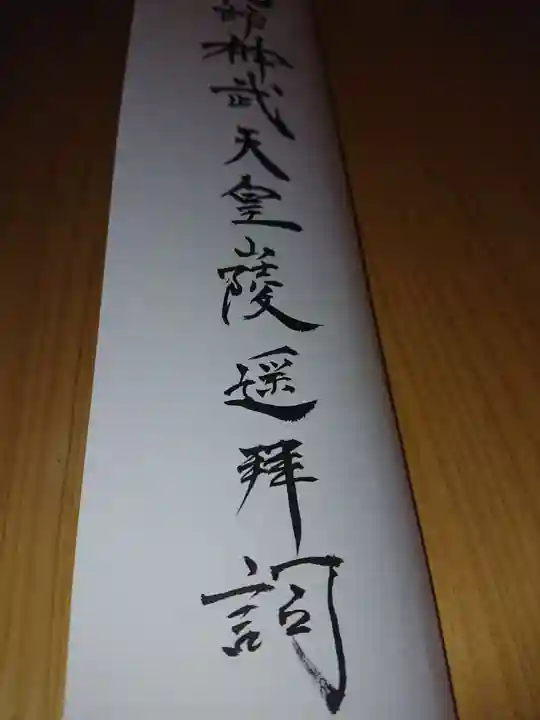 神武天皇山陵遥拝詞